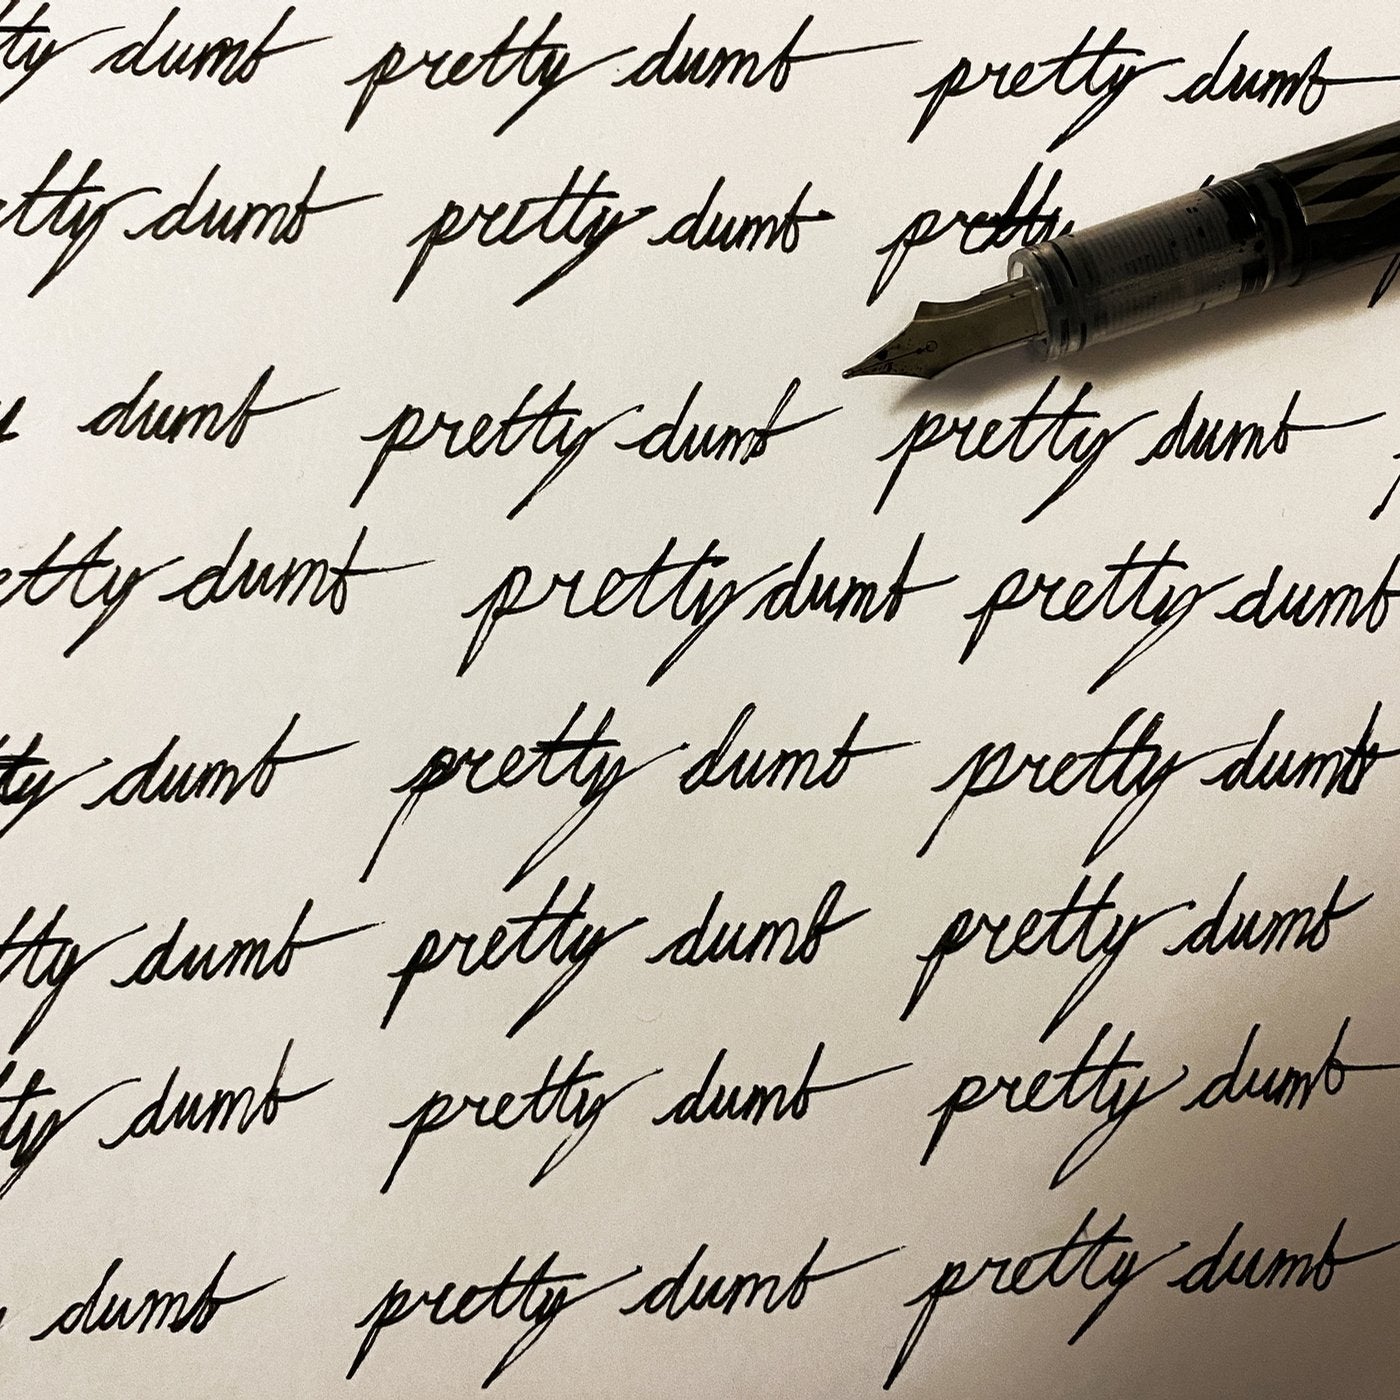 tty dumb pretty dumb pretty dumb
etty dumb pretty dumb pretty
dumb pretty dumb pretty dumb
etty dumb pretty dumb pretty dumb
ty dumb pretty dumb pretty dumb
tty dumb pretty dumb pretty dumb
ty dumb pretty dumb pretty dumb
dumb pretty dumb pretty dumb